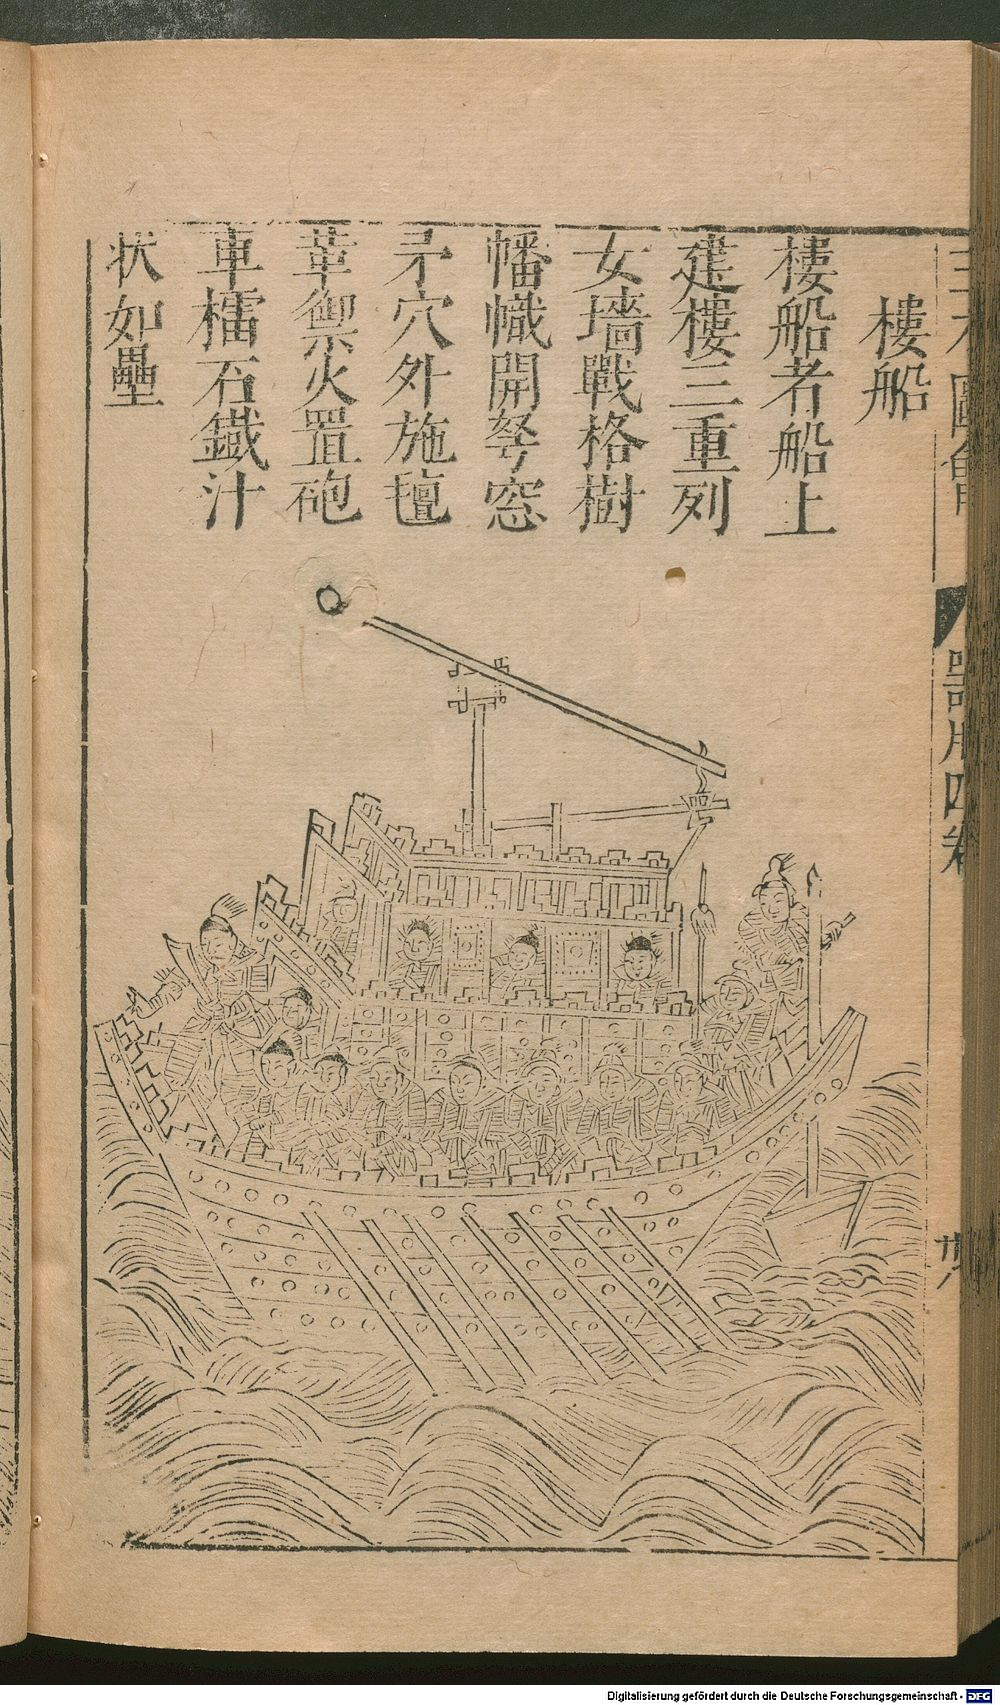 樓船
樓船者船上
建樓三重列
女墻戰格樹
幡幟開弩窓
矛穴外施氊
革禦火置砲
車檑石鐵汁
状如壘
三才圖會
器用四卷
廿八
Digitalisierung gefördert durch die Deutsche Forschungsgemeinschaft - DFG